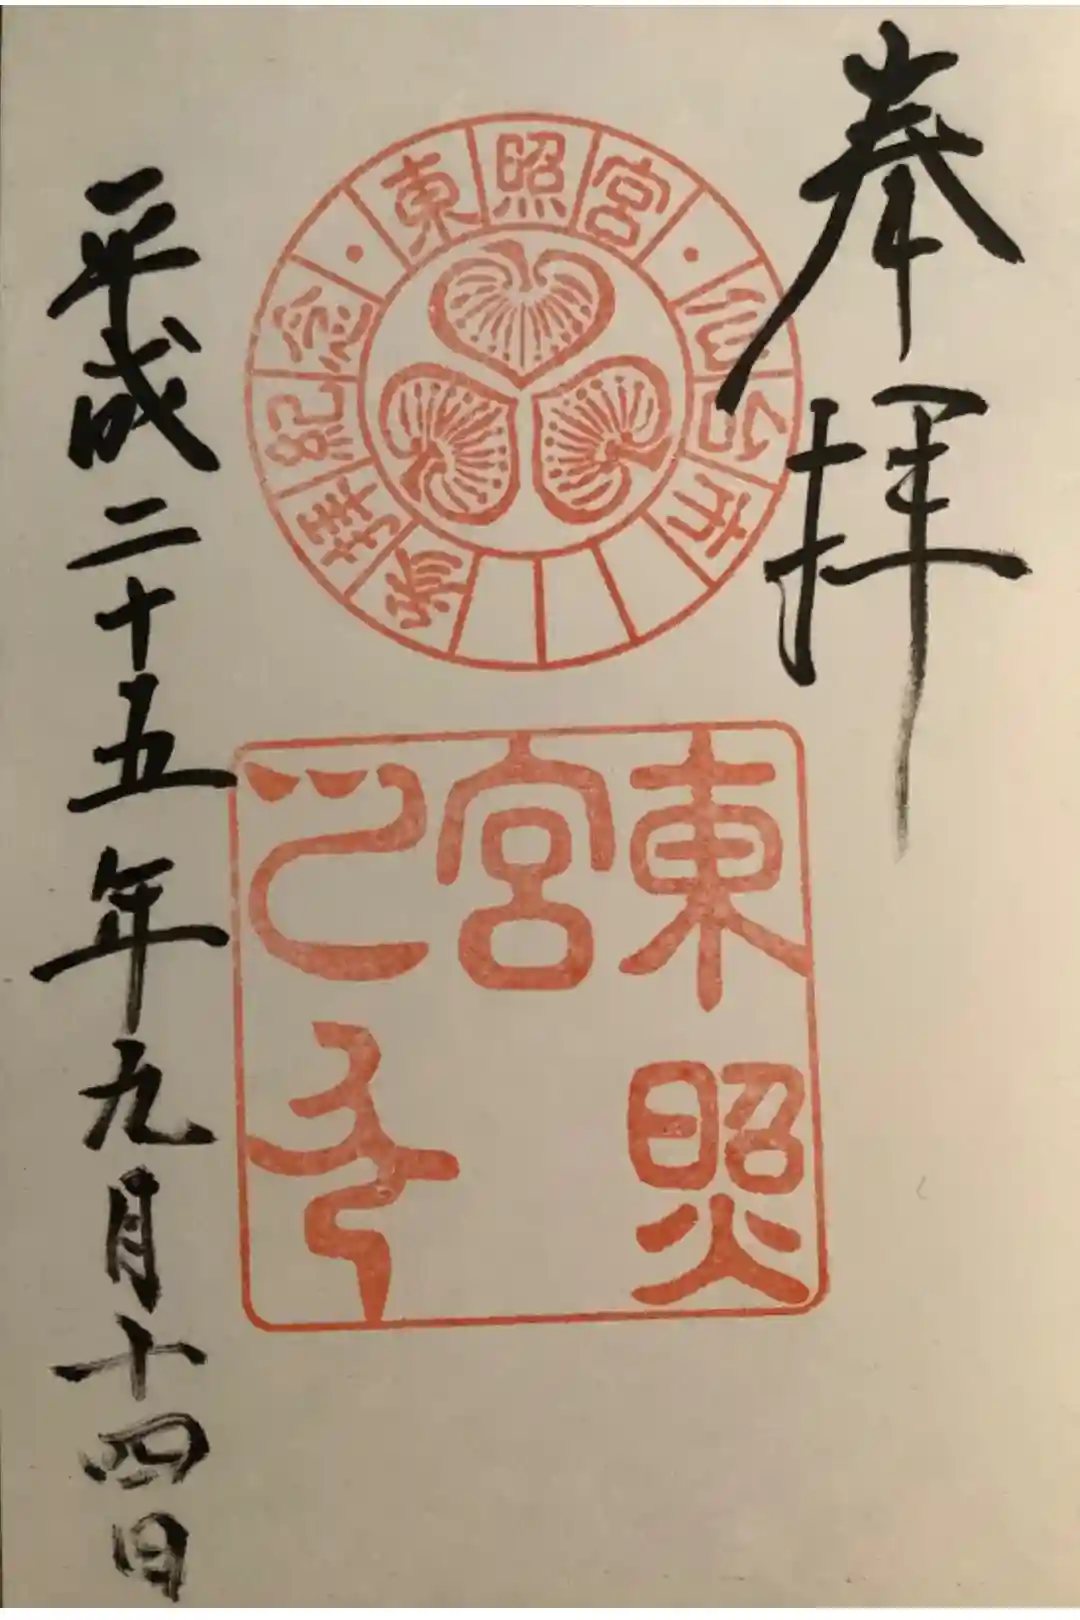 奉拝
東照宮・仙台市
参拝紀念・
東照
宮
之印
平成二十五年九月十四日